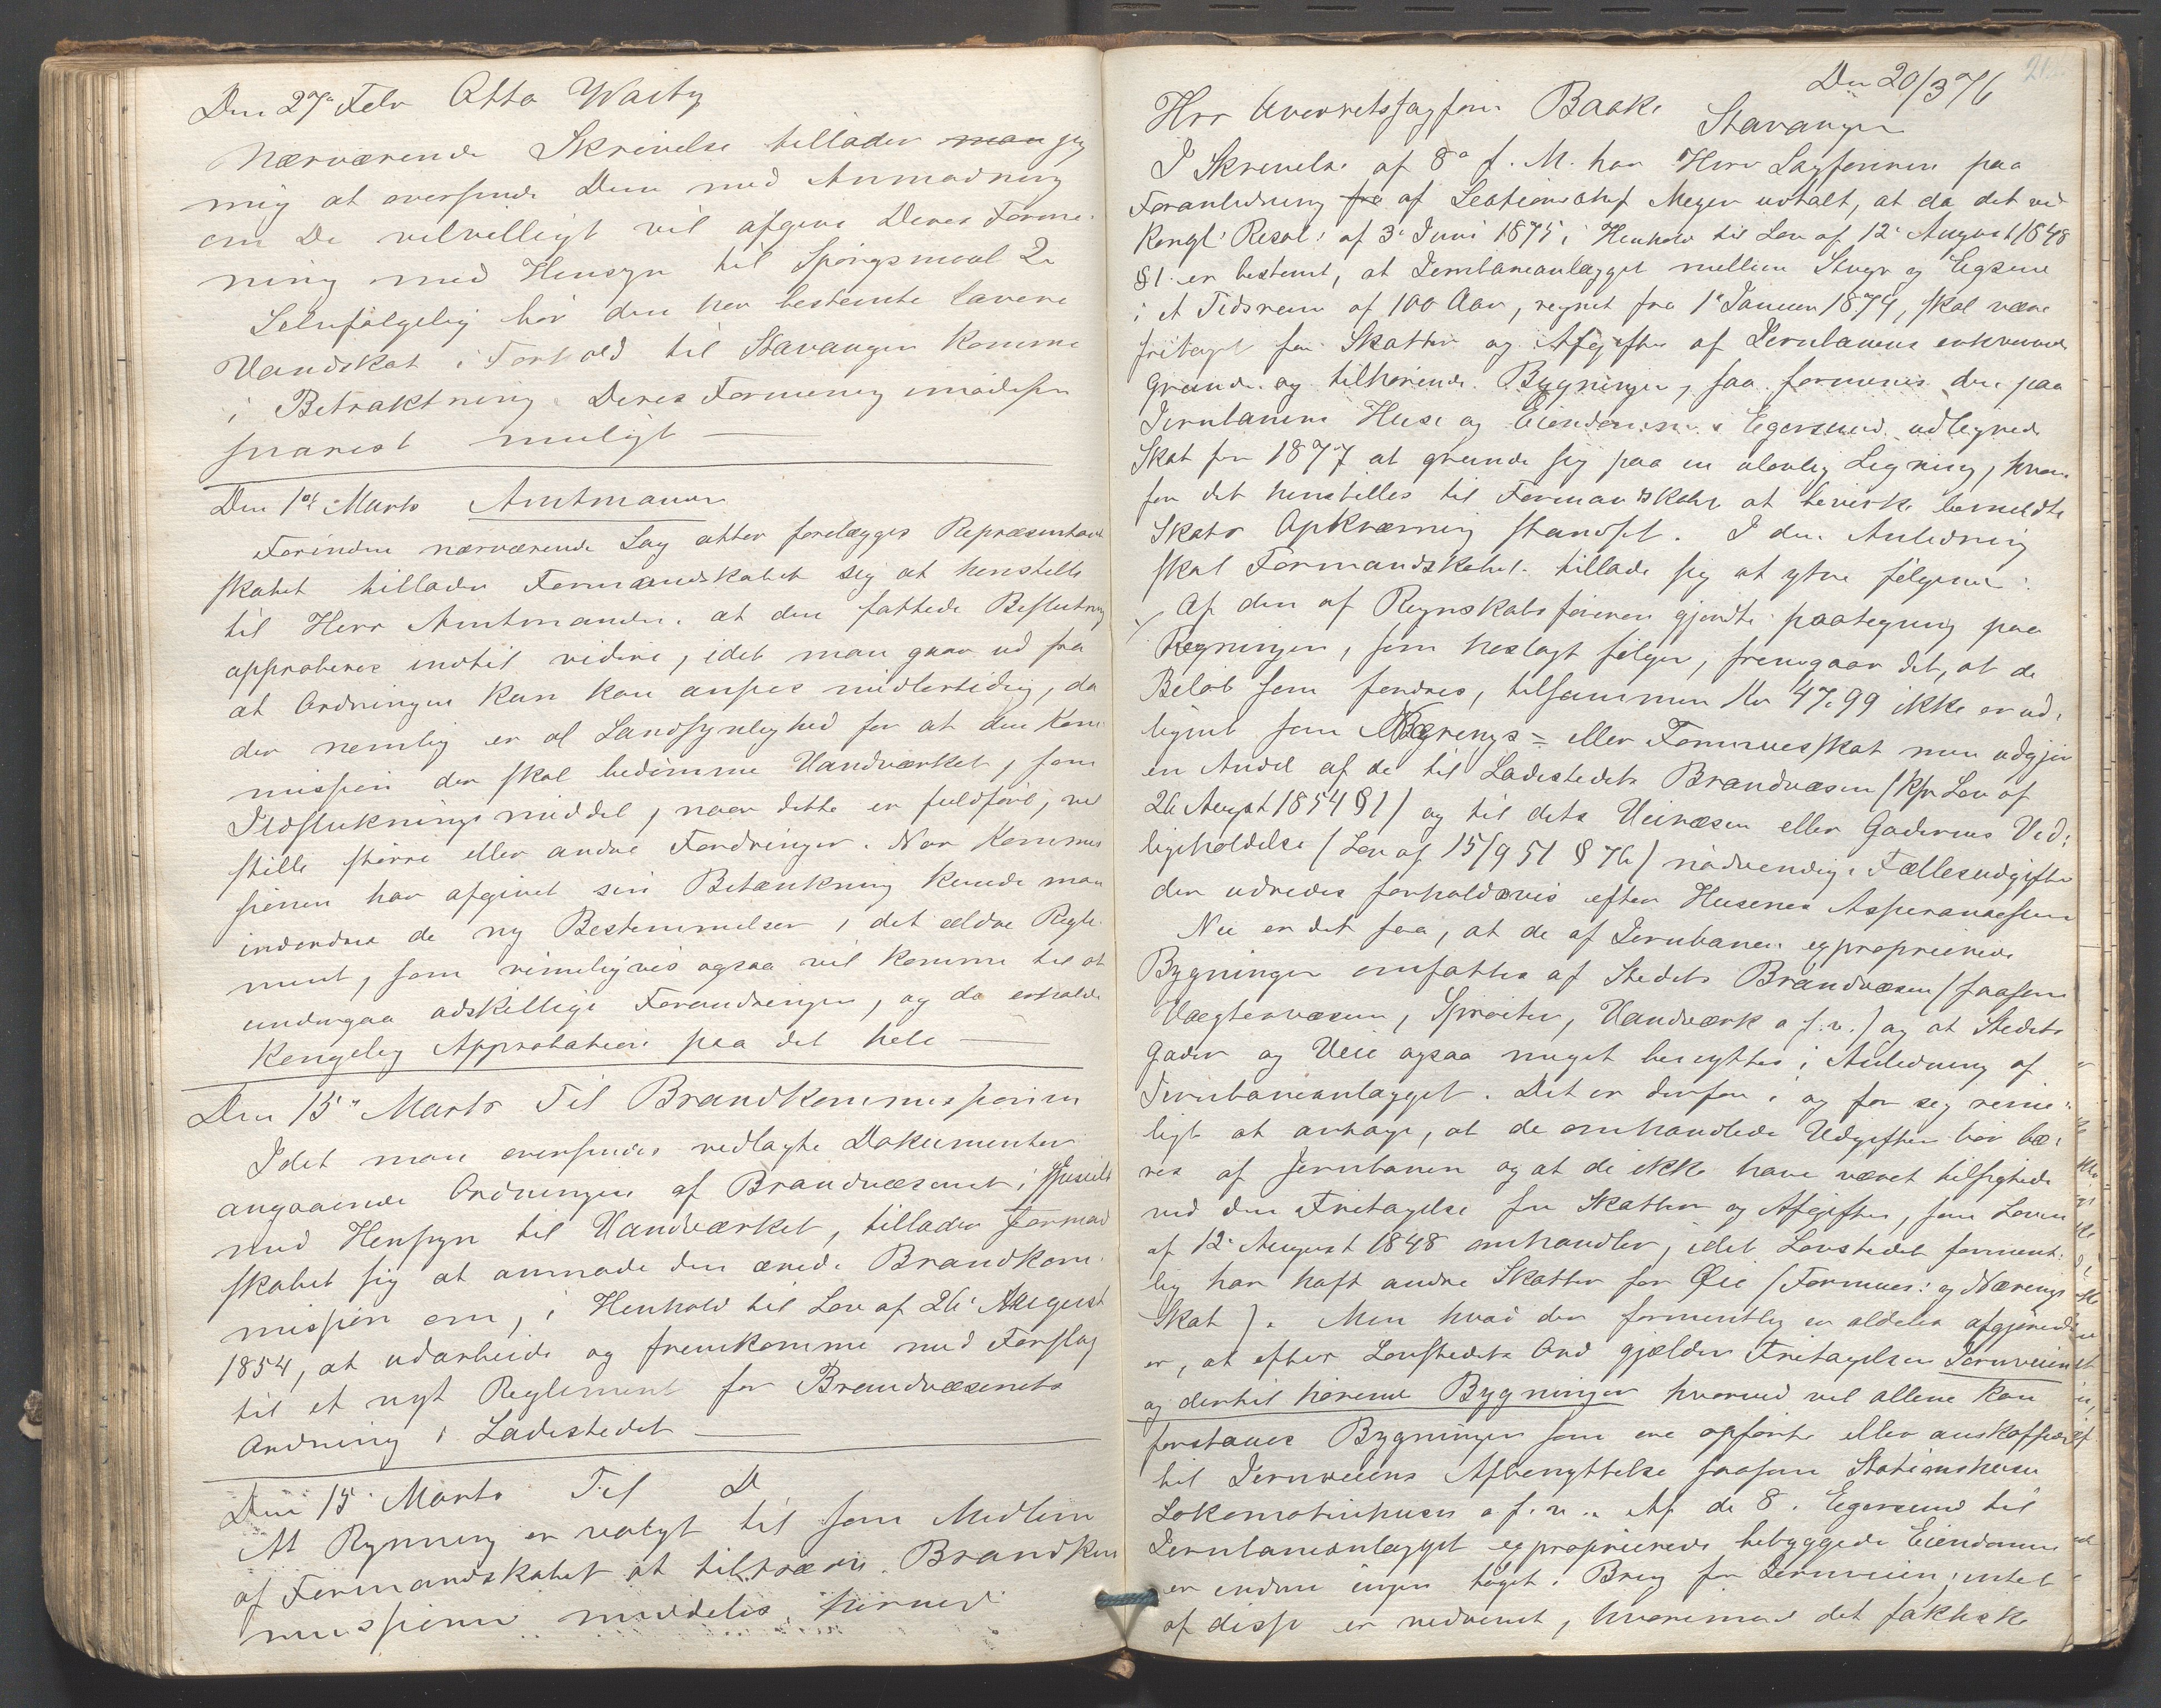 Den 27de Febr Otto Waity
Nærværende Skrivelse tillader man jeg
mig at oversende Dem med Anmodning
om De velvilligt vil afgive Deres Forme-
ning med Hensyn til Spørgsmaal 2.
Selvfølgelig bør den her bestemte lavere
Vandskat i Forhold til Stavanger komme
i Betraktning. Deres Formening imødesees
snarest muligt —
Den 1st Marts Amtmanden
Forinden nærværende Sag atter forelægges Repræsentant
skabet tillader Formandskabet sig at henstille
til Herr Amtmanden at den fattede Beslutning
approberes indtil videre, idet man gaar ud fra
at Ordningen kun kan ansees midlertidig, da
der nemlig er al Sandsynlighed for at den Kom-
mission der skal bedømme Vandværket, som
Ildslukningsmiddel, naar dette er fuldført, vil
stille større eller andre Fordringer. Naar Kommis
sionen har afgivet sin Betænkning kunde man
indordne de ny Bestemmelser i det ældre Regle-
ment, som rimeligvis ogsaa vil komme til at
undergaa adskillige Forandringer, og da erholde
Kongelig Approbation paa det hele —
Den 15de Marts Til Brandkommissionen
Idet man oversender vedlagte Dokumenter
angaaende Ordningen af Brandvæsenet, specielt
med Hensyn til Vandværket, tillader Formand
skabet sig at anmode den ærede Brandkom-
mission om, i Henhold til Lov af 26 August
1854, at udarbeide og fremkomme med Forslag
til et nyt Reglement for Brandvæsenets
Ordning i Ladestedet —
Den 15 Marts Til D
At Rynning er valgt til som Medlem
af Formandskabet at tiltræde Brandkom
missionen meddeles herved
Den 20/3 76
Hrr Overretssagfører Bakke
Stavanger
I Skrivelse af 8de f. M. har Herr Sagføreren paa
Foranledning fra af Sectionschef Meyer udtalt, at da det ved
Kongl: Resol: af 3die Juni 1875 i Henhold til Lov af 12te August 1848
§ 1. er bestemt, at Jernbaneanlægget mellem Stvgr og Egsund
i et Tidsrum af 100 Aar, regnet fra 1ste Januar 1874, skal være
fritaget for Skatter og Afgifter af Jernbanens erhvervede
Grunde og tilhørende Bygninger, saa formenes den paa
Jernbanens Huse og Eiendomme i Egersund udlignede
Skat for 1877 at grunde sig paa en ulovlig Ligning, hvor-
for det henstilles til Formandskabet at bevirke bemeldte
Skats Opkrævning standset. I den Anledning
skal Formandskabet tillade sig at ytre følgende:
Af den af Regnskabsføreren gjordte paategning paa
Regningen, som heslagt følger, fremgaar det, at de
Beløb som fordres, tilsammen Kr 47.99 ikke er ud-
lignet som Nærings- eller Formuesskat men udgjør
en Andel af de til Ladestedets Brandvæsen (kfr Lov af
26 August 1854 § 1) og til dets Veivæsen eller Gadernes Ved-
ligeholdelse (Lov af 15/9 51 § 76) nødvendige Fællesudgifter
der udredes forholdsvis efter Husenes Assurancesum
Nu er det saa, at de af Jernbanen expropierede
Bygninger omfattes af Stedets Brandvæsen (saasom
Vægtervæsen, Sprøiter, Vandværk o. s. v.) og at Stedets
Gader og Veie ogsaa meget benyttes i Anledning af
Jernbaneanlægget. Det er derfor i og for sig rime-
ligt at antage, at de omhandlede Udgifter bør bæ-
res af Jernbanen og at de ikke have været tilsigtede
ved den Fritagelse for Skatter og Afgifter, som Loven
af 12te August 1848 omhandler, idet Lovstedet forment-
lig har haft andre Skatter for Øie (Formues: og Nærings
Skat). Men hvad der formentlig er aldeles afgjørende
er, at efter Lovstedets Ord gjælder Fritagelsen Jernveien
og dertil hørende Bygninger hvorved vel allene kan
forstaaes Bygninger som ere opførte eller anskaffede
til Jernveiens Afbenyttelse saasom Stationshuse
Lokomotivhuse o. s. v. Af de 8 i Egersund til
Jernbaneanlægget expropierede bebyggede Eiendomme
er endnu ingen taget i Brug for Jernveien, intet
af disse er nedrevet, hvorimod det faktiske